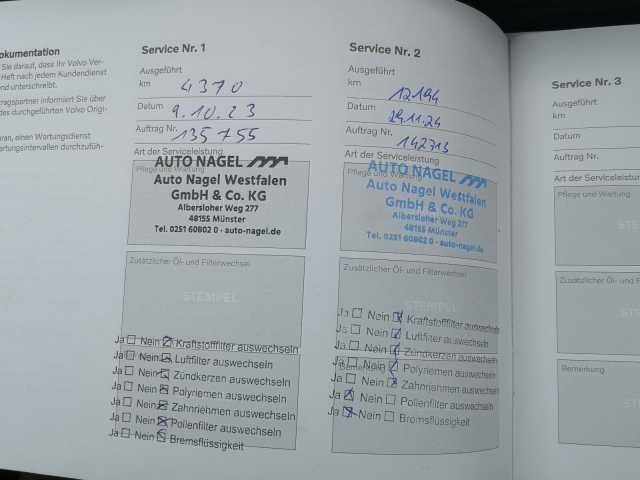 okumentation
Sie darauf, dass Ihr Volvo Ver-
Heft nach jedem Kundendienst
end unterschreibt.
tragspartner informiert Sie über
des durchgeführten Volvo Origi-
ran, einen Wartungsdienst
artungsintervallen durchzufüh-
Service Nr. 1
Ausgeführt
km 4370
Datum 9.10.23
Auftrag Nr. 135755
Art der Serviceleistung
Pflege und Wartung
AUTO NAGEL
Auto Nagel Westfalen
GmbH & Co. KG
Albersloher Weg 277
48155 Münster
Tel. 0251 60802 0 - auto-nagel.de
Zusätzlicher Öl- und Filterwechsel
STEMPEL
Ja Nein Kraftstofffilter auswechseln
Ja Nein Luftfilter auswechseln
Ja Nein Zündkerzen auswechseln
Ja Nein Polyriemen auswechseln
Ja Nein Zahnriehmen auswechseln
Ja Nein Pollenfilter auswechseln
Ja Nein Bremsflüssigkeit
Service Nr. 2
Ausgeführt
km 12194
Datum 29.11.24
Auftrag Nr. 142713
Art der Serviceleistung
Pflege und Wartung
AUTO NAGEL
Auto Nagel Westfalen
GmbH & Co. KG
Albersloher Weg 277
48155 Münster
Tel. 0251 60802 0 - auto-nagel.de
Zusätzlicher Öl- und Filterwechsel
STEMPEL
Ja Nein Kraftstofffilter auswechseln
Ja Nein Luftfilter auswechseln
Ja Nein Zündkerzen auswechseln
Ja Nein Polyriemen auswechseln
Bemerkung
Ja Nein Zahnriehmen auswechseln
Ja Nein Pollenfilter auswechseln
Ja Nein Bremsflüssigkeit
Service Nr. 3
Ausgeführt
km
Datum
Auftrag Nr.
Art der Servicele
Pflege und Wartung
Zusätzlicher Öl- und F
Bemerkung